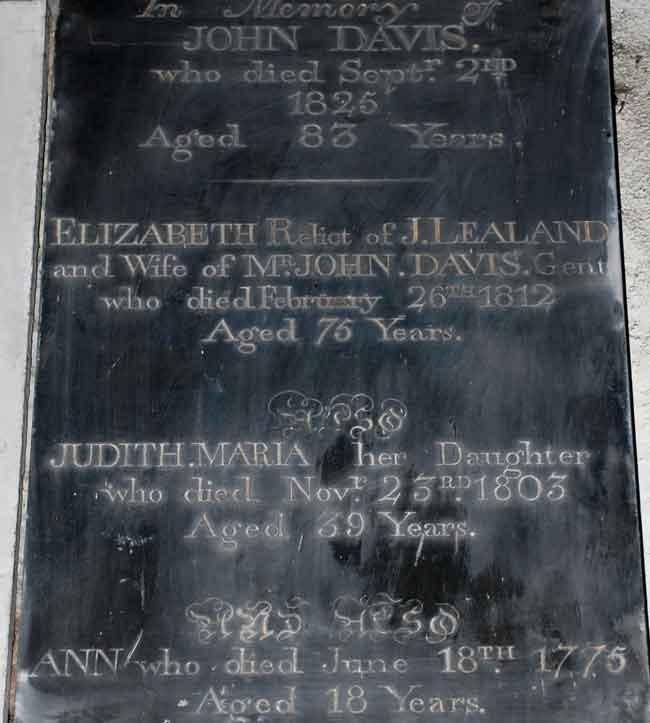 In Memory of
JOHN DAVIS.
who died Septr. 2nd
1825
Aged 83 Years.
ELIZABETH Relict of J. LEALAND
and Wife of Mr. JOHN. DAVIS. Gent
who died February 26TH 1812
Aged 75 Years.
ALSO
JUDITH. MARIA her Daughter
who died Novr. 23RD. 1803
Aged 39 Years.
AND ALSO
ANN who died June 18TH. 1775
Aged 18 Years.